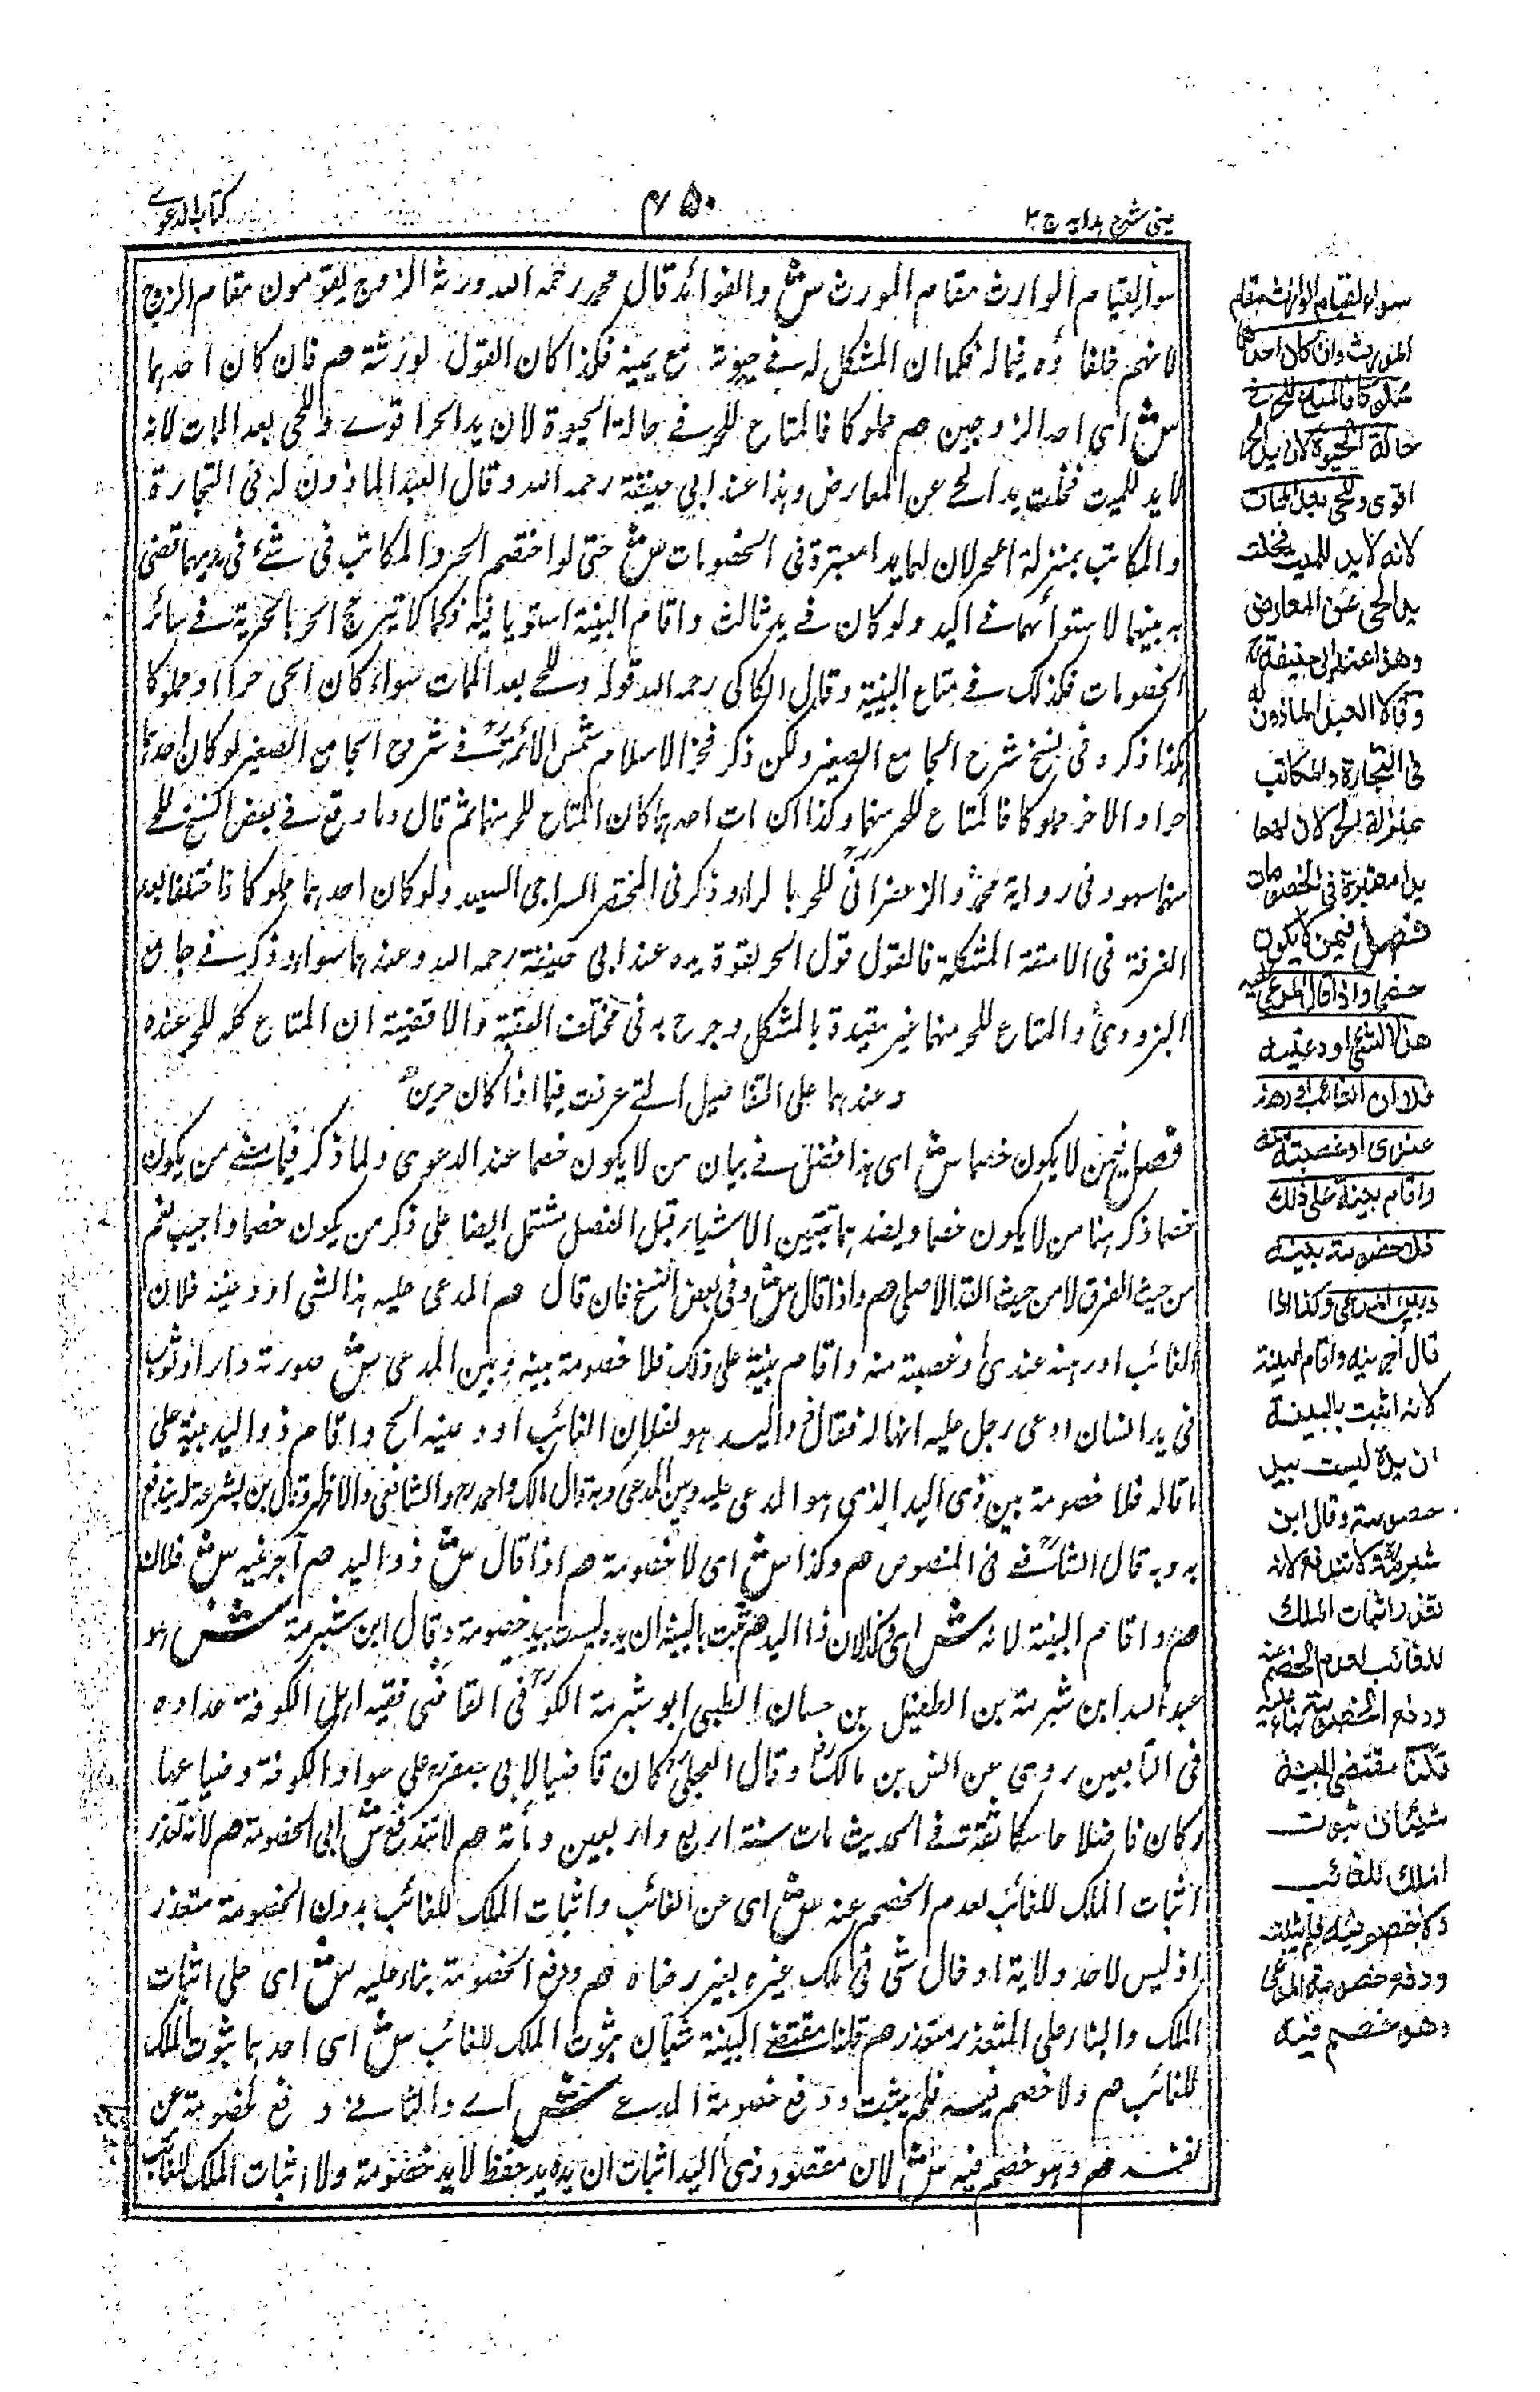 عينى شرح هدايه ج ٣
٤٥٠
كتاب الدعوے
سواء لقيام الوارث مقام المورث ش والفوائد قال محمد رحمه الله ورثة الزوج يقومون مقام الزوج
لانهم خلفاؤه فيما له فكما ان المشكل له فے حيوته مع يمينه فكذا كان القول لورثته هم فان كان احدهما
ش اى احد الزوجين هم مملوكا فالمتاع للحر فے حالة الحيوة لان يد الحر اقوے وللحى بعد الممات لانه
لا يد للميت فخلت يد الحے عن المعارض وهذا عند ابي حنيفة رحمه الله وقال العبد الماذون له فى التجارة
والمكاتب بمنزلة الحر لان لهما يدا معتبرة فى الخصومات ش حتى لو اختصم الحر والمكاتب فى شئ فى يديهما قضى
به بينهما لاستوائهما فے اليد ولو كان فے يد ثالث واقام البينة استويا فيه فكما لا يترجح الحر بالحرية فے سائر
الخصومات فكذلك فے متاع البيت وقال الكاكى رحمه الله قوله وللحے بعد الممات سواء كان الحى حرا او مملوكا
هكذا ذكر وفى نسخ شرح الجامع الصغير ولكن ذكر فخر الاسلام شمس الائمة فے شروح الجامع الصغير لو كان احدهما
حرا والاخر مملوكا فالمتاع للحر منهما وكذا ان مات احدهما كان المتاع للحر منهما ثم قال وما وقع فے بعض النسخ للحے
منهما سهو وفى رواية محمد والزعفرانى للحر بالراء وذكر فى المختصر السراجى السعيد ولو كان احدهما مملوكا فاختلفا بعد
الفرقة فى الامتعة المشكلة فالقول قول الحر لقوة يده عند ابى حنيفة رحمه الله وعندهما سواء وذكر فے جامع
البزدوى والمتاع للحر منهما غير مقيدة بالمشكل وصرح به فى مختلف العقبة والاقضية ان المتاع كله للحر عنده
وعندهما على التفاصيل التے عرفت فيما اذا كان حرين
فصل فيمن لا يكون خصما ش اى هذا فصل فے بيان من لا يكون خصما عند الدعوى ولما ذكر فيما مضے من يكون
خصما ذكر هنا من لا يكون خصما وبضدها تتبين الاشياء قبل الفصل مشتمل ايضا على ذكر من يكون خصما واجيب نعم
من حيث الفرق لا من حيث القصد الاصلى هم واذا قال ش وفى بعض النسخ فان قال هم المدعى عليه هذا الشى اودعنيه فلان
الغائب او رهنه عندى او غصبته منه واقام بينة على ذلك فلا خصومة بينه وبين المدعى ش صورته دار او ثوب
فى يد انسان ادعى رجل عليه انها له فقال ذو اليد هو لفلان الغائب اودعنيه الخ واقام ذو اليد بينة على
ما قاله فلا خصومة بين ذى اليد الذى هو المدعى عليه وبين المدعى وبه قال مالك واحمد والشافعى والاظهر وقال ابن شبرمة لا يندفع
به وبه قال الشافعے فى المنصوص هم وكذا ش اى لا خصومة هم اذا قال ش ذو اليد هم آجرنيه ش فلان
هم واقام البينة لانه ش اى لان ذا اليد هم اثبت بالبينة ان يده ليست بيد خصومة وقال ابن شبرمة ش هو
عبد الله ابن شبرمة بن الطفيل بن حسان الظبى ابو شبرمة الكوفى القاضى فقيه اهل الكوفة عداده
فى التابعين روى عن انس بن مالك وقال العجلى كان قاضيا لابى جعفر على سواد الكوفة وضياعها
وكان فاضلا حاسكا ثقة فے الحديث مات سنة اربع واربعين ومأته هم لا تندفع ش اى الخصومة هم لانه تعذر
اثبات الملك للغائب لعدم الخصم عنه ش اى عن الغائب واثبات الملك للغائب بدون الخصومة متعذر
اذ ليس لاحد ولاية ادخال شى فى ملك غيره بغير رضاه هم ودفع الخصومة بناء عليه ش اى على اثبات
الملك والبناء على المتعذر متعذر هم قلنا مقتضے البينة شيأن ثبوت الملك للغائب ش اى احدهما ثبوت الملك
للغائب هم ولا خصم فيه فلم يثبت ودفع خصومة المدعے ش اے والثانے دفع خصومة عن
نفسه هم وهو خصم فيه ش لان مقصود ذى اليد اثبات ان يده يد حفظ لا يد خصومة ولا اثبات الملك للغائب
سواء لقيام الوارث مقام
المورث وان كان احدهما
مملوكا فالمتاع للحر فى
حالة الحيوة لان يد الحر
اقوى وللحى بعد الممات
لانه لا يد للميت فخلت
يد الحى عن المعارض
وهذا عند ابى حنيفة
وقالا العبد الماذون له
فى التجارة والمكاتب
بمنزلة الحر لان لهما
يدا معتبرة فى الخصومات
فصل فيمن لا يكون
خصما واذا قال المدعى عليه
هذا الشئ اودعنيه
فلان الغائب او رهنه
عندى او غصبته منه
واقام بينة على ذلك
فلا خصومة بينه
وبين المدعى وكذا اذا
قال آجرنيه واقام البينة
لانه اثبت بالبينة
ان يده ليست بيد
خصومة وقال ابن
شبرمة لا تندفع لانه
تعذر اثبات الملك
للغائب لعدم الخصم عنه
ودفع الخصومة بناء عليه
قلنا مقتضى البينة
شيئان ثبوت
الملك للغائب
ولا خصم فيه فلم يثبت
ودفع خصومة المدعى
وهو خصم فيه